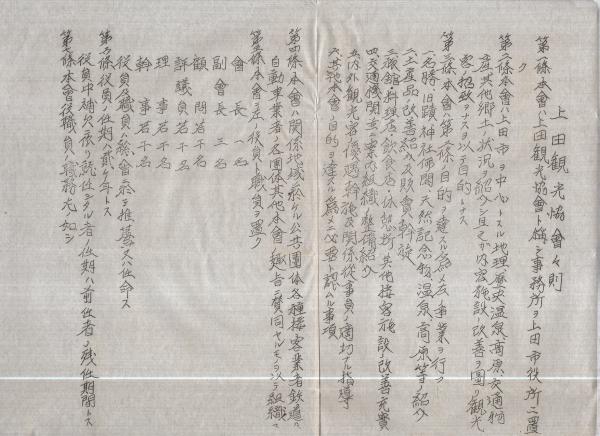 上田観光協會々則
第一條本會ハ上田観光協會ト稱シ事務所ヲ上田市役所ニ置
ク
第二條本會ハ上田市ヲ中心トスル地理、歴史、温泉、高原、交通、物
産其他郷土ノ状況ヲ紹介シ且ソノ内容施設ノ改善ヲ圖リ観光
客ノ招致ヲナスヲ以テ目的トナス
第三條本會ハ第二條ノ目的ヲ達スル為メ左ノ事業ヲ行フ
一、名勝、旧蹟、神社、佛閣、天然記念物、温泉、高原等ノ紹介
二、土産品ノ改善紹介及販賣斡旋
三、旅館、料理店、飲食店、休憩所、其他接客施設ノ改善充實
四、交通機関並ニ案内組織ノ整備紹介
五、内外観光客ノ優遇斡旋及関係従事員ノ適切ナル指導
六、其他本會ノ目的ヲ達スル為メニ必要ト認ムル事項
第四條本會ハ関係地域ニ於ケル公共團体、各種接客業者、鉄道、
自動車業者ノ各團体其他本會ノ趣旨ニ賛同セルモノヲ以テ組織ス
第五條本會ニ左ノ役員ト職員ヲ置ク
會長 一名
副會長 三名
顧問 若干名
評議員 若干名
理事 若干名
幹事 若干名
役員及職員ハ總會ニ於テ推薦又ハ任命ス
第六條役員ノ任期ハ貳ケ年トス
役員中補欠ニ依リ就任シタル者ノ任期ハ前任者ノ残任期間トス
第七條本會役職員ノ職務左ノ如シ